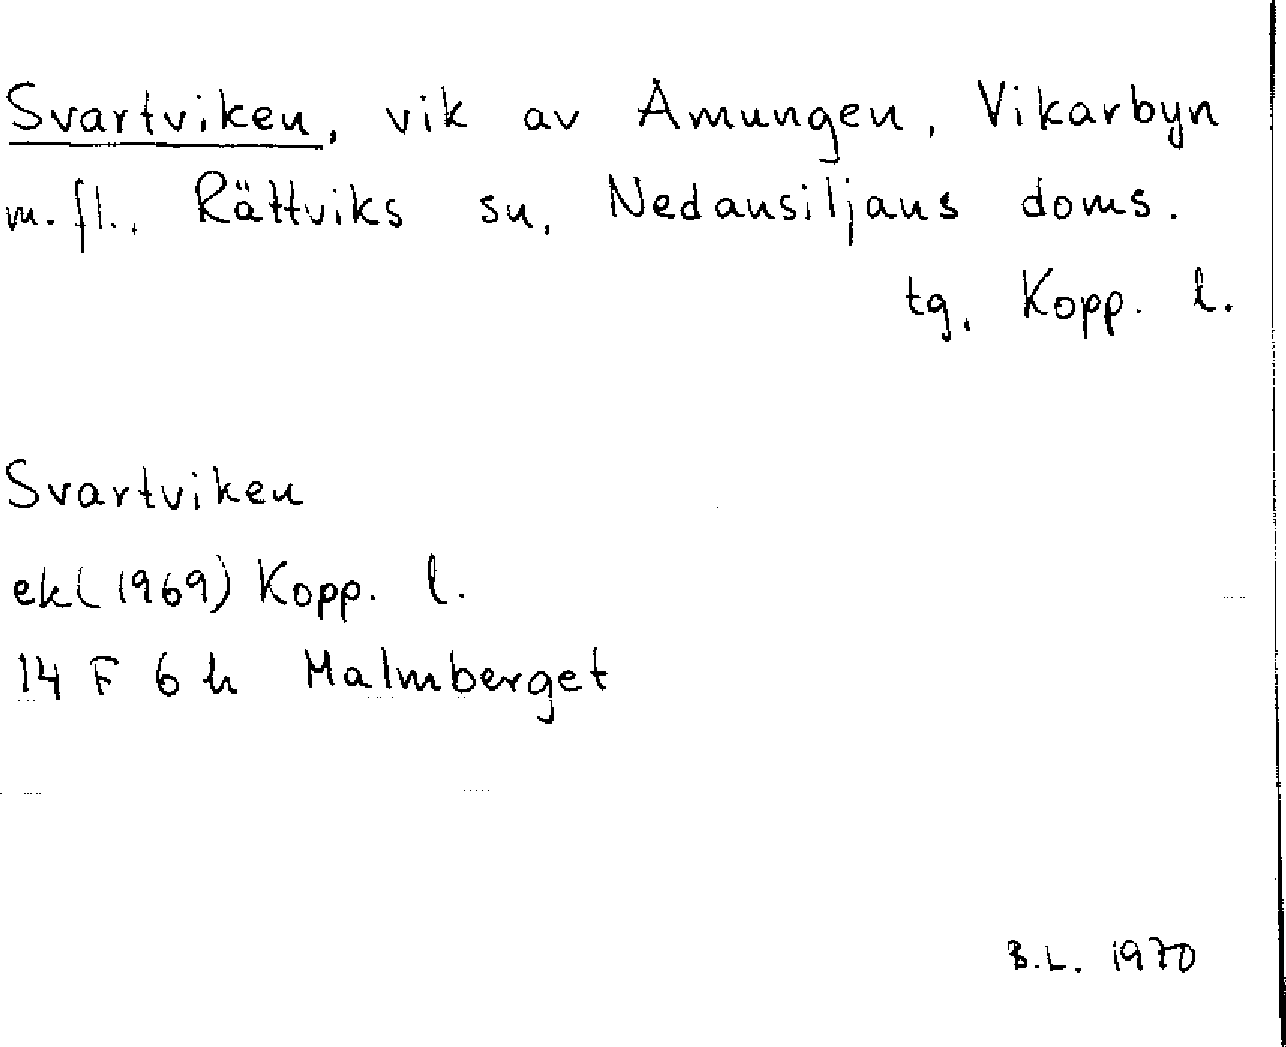 Svartviken, vik av Amungen, Vikarbyn
m.fl., Rättviks sn, Nedansiljans doms.
tg, Kopp. l.
Svartviken
ek (1969) Kopp. l.
14 F 6 h Malmberget
B.L. 1970